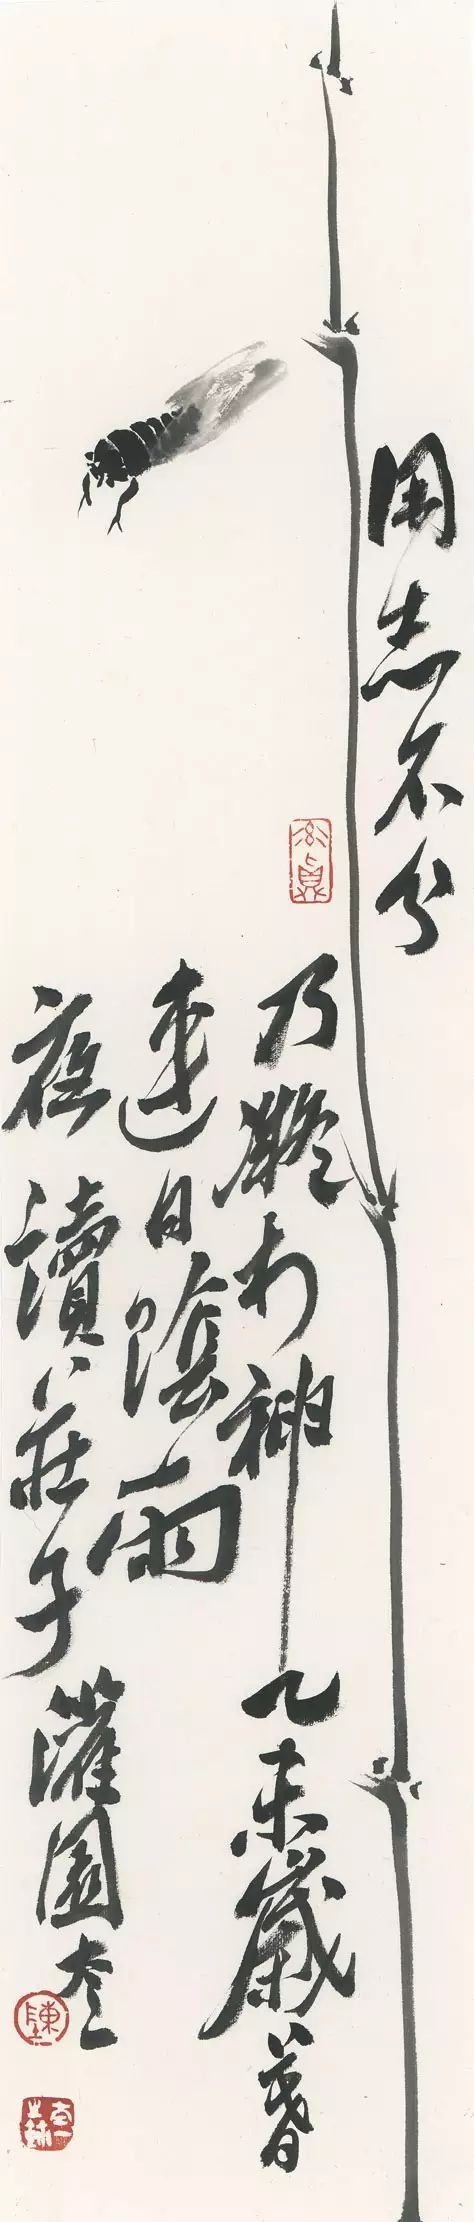 用志不分
乃凝於神
乙未歲暮
連日陰雨
夜讀莊子
灌園
陳